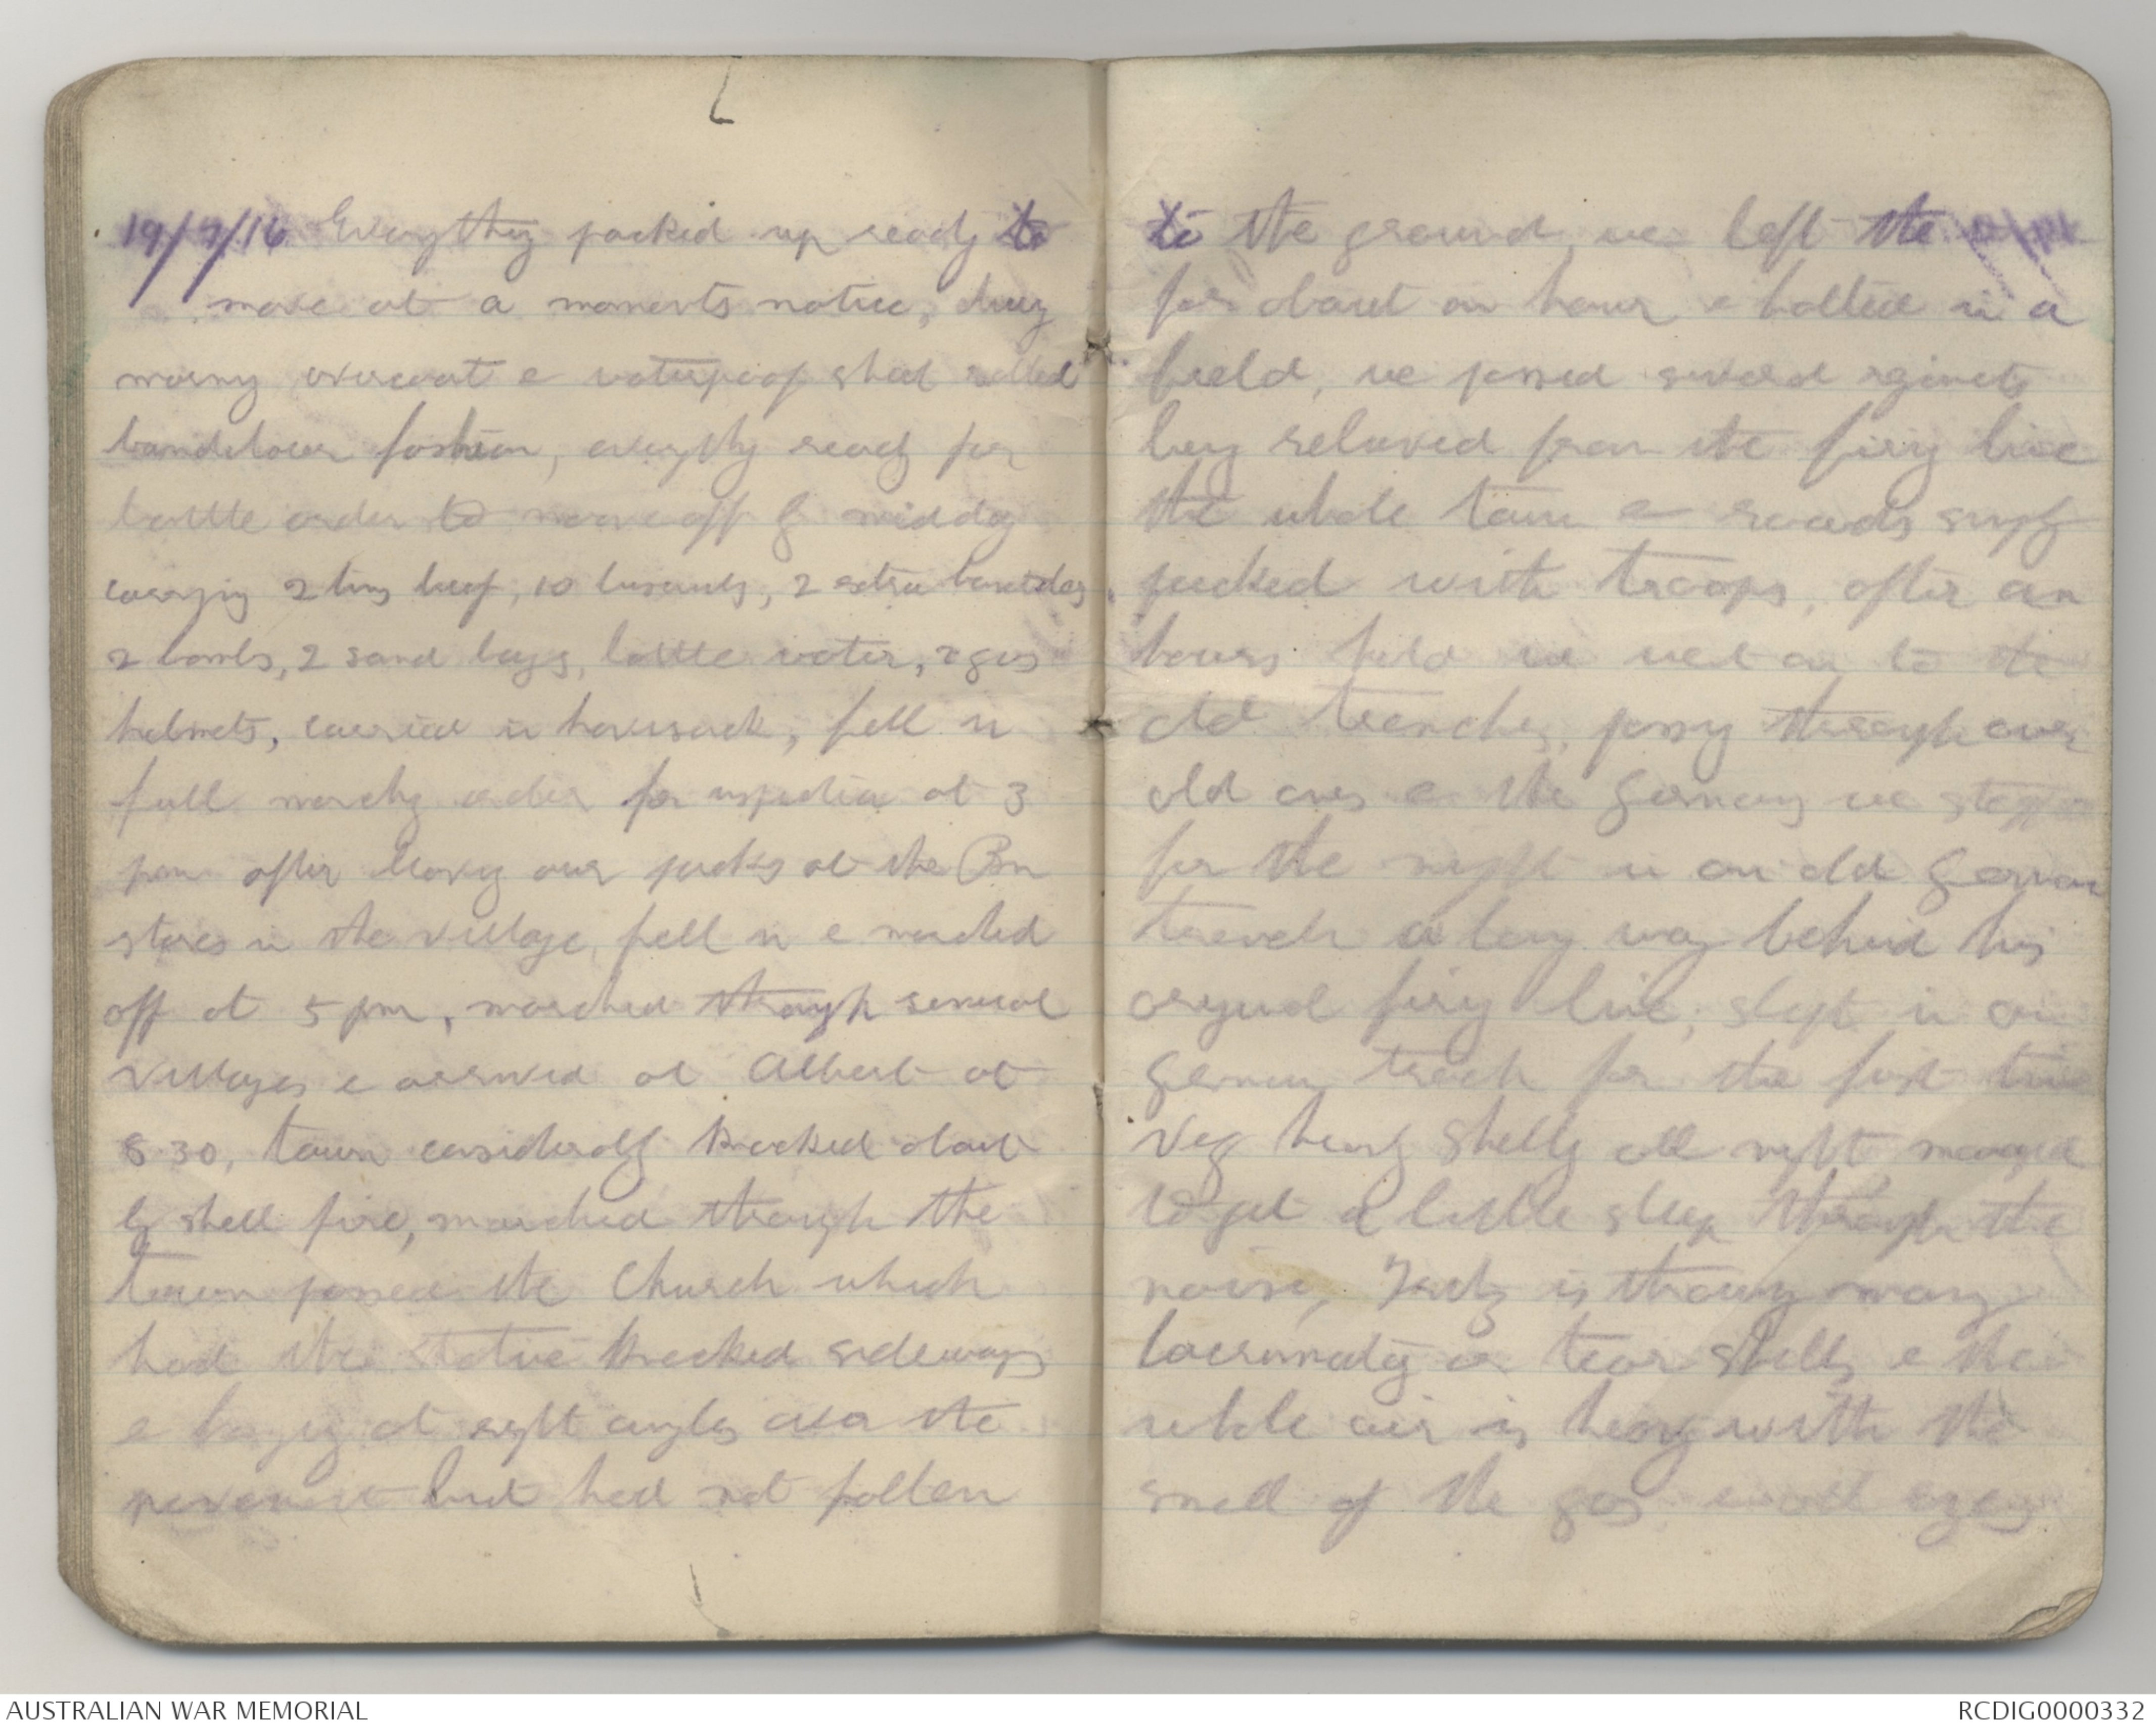 19/7/16 Everything packed up ready to
move at a moments notice, during
morng overcoat & waterproof sheet rolled
bandolour fashion, everythg ready for
battle order to move off by midday
carrying 2 tins beef, 10 biscuits, 2 extra bandolers
2 bombs, 2 sand bags, bottle water, 2 gas
helmets, carried in haversack, fell in
full marchg order for inspection at 3
pm after leaving our packs at the Bn
stores in the village, fell in & marched
off at 5 pm, marched through several
villages & arrived at Albert at
8.30, town considerably knocked about
by shell fire, marched through the
town passed the Church which
had the statue knocked sideways
& hanging at right angles over the
pavement but had not fallen
to the ground, we left the
for about an hour & halted in a
field, we passed several regiments
being relieved from the firing line
the whole town & roads simply
packed with troops, after an
hours we went on to the
old trenches, passing through our
old ones & the Germans we stopped
for the night in an old German
trench a long way behind his
original firing line, slept in an
German trench for the first time
Very heavy shellg all night, managed
to get a little sleep through the
noise, Fritz is throwing many
lacrimating or tear shells & the
whole air is heavy with the
smell of the gas, eyes
AUSTRALIAN WAR MEMORIAL
RCDIG0000332